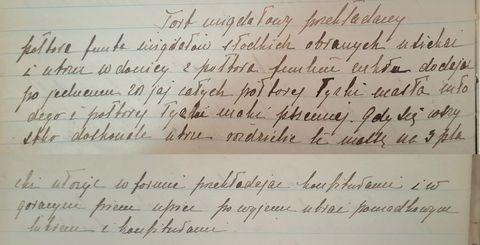 Tort migdałowy przekładany
półtora funta migdałów słodkich obranych usiekać
i utrzeć w donicy z półtora funtem cukru dodając
po jednemu 20 jaj całych półtorej łyżki masła mło
dego i półtorej łyżki mąki pszennej. Gdy się wszy
stko doskonale utrze rozdzielić tę massę na 3 pla
cki ułożyć w formie przekładając konfiturami i w
gorącym piecu upiec po wyjęciu ubrać pomadkowym
lukrem i konfiturami